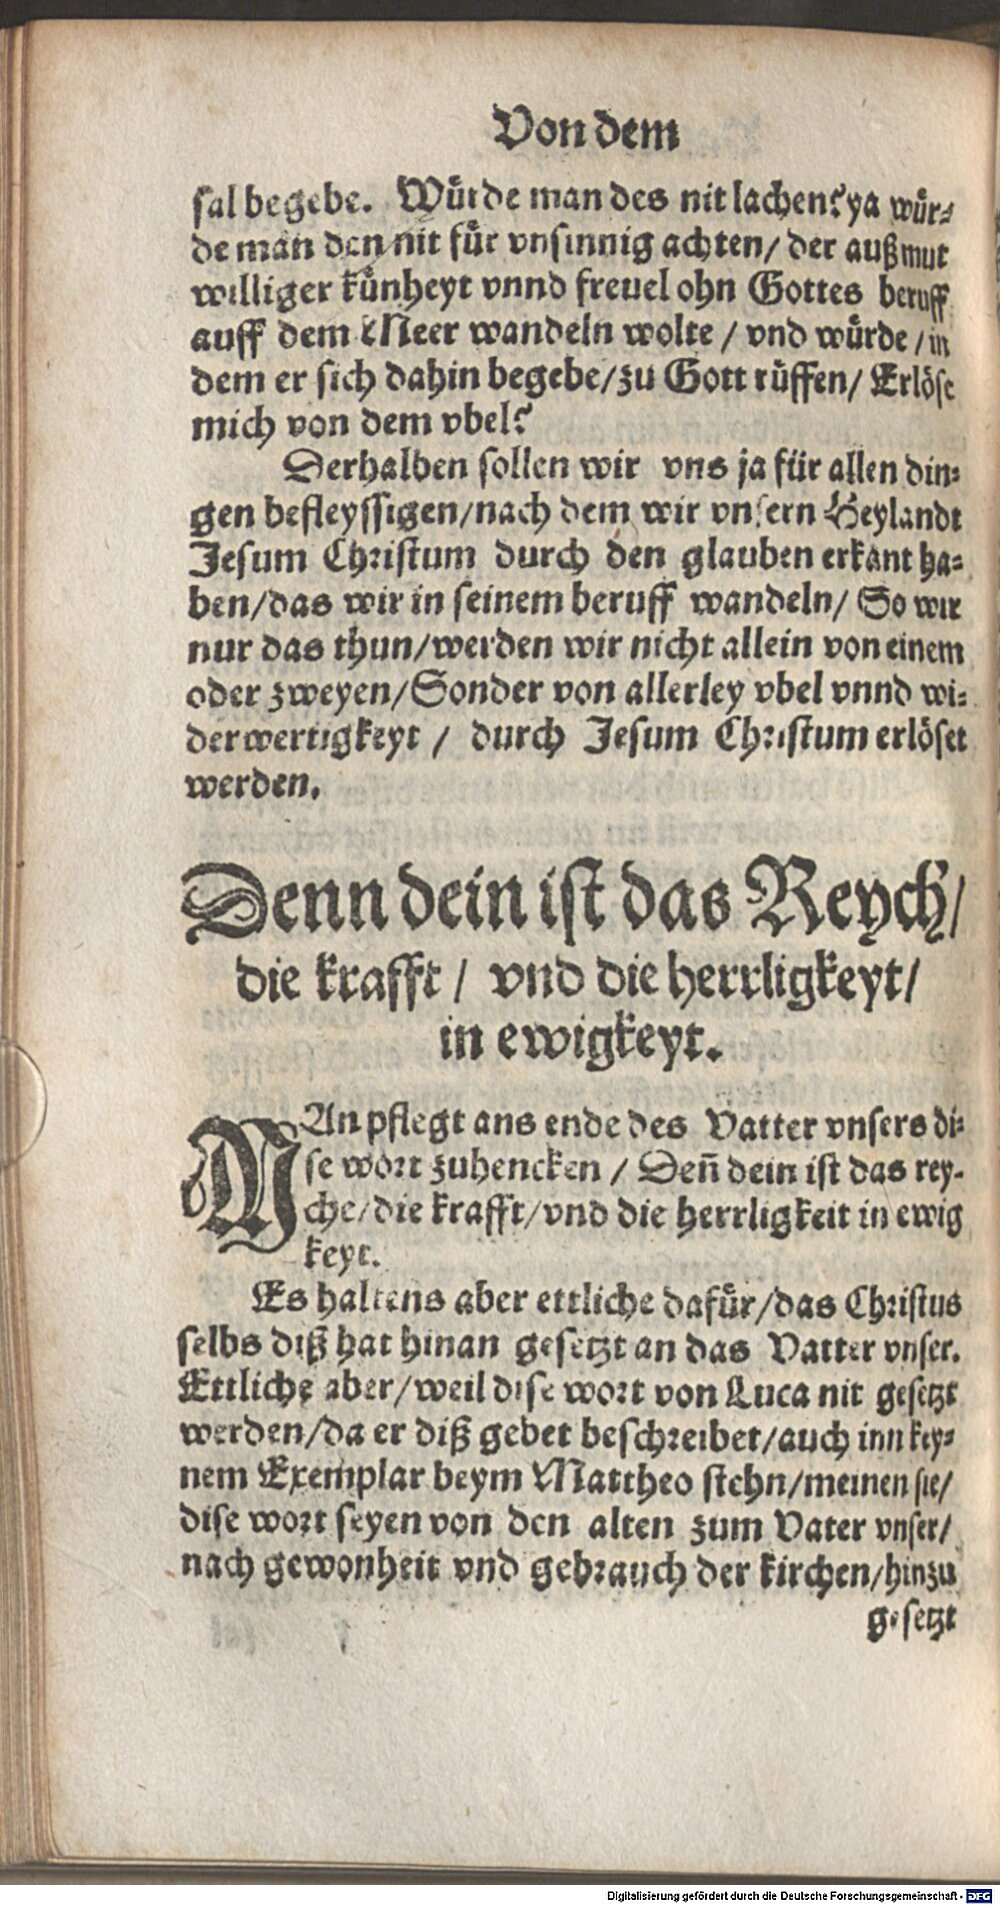 Von dem
sal begebe. Wuͤrde man des nit lachen? ya wuͤr-
de man den nit fuͤr vnsinnig achten/ der auß mut
williger kuͤnheyt vnnd freuel ohn Gottes beruff
auff dem Meer wandeln wolte / vnd wuͤrde / in
dem er sich dahin begebe/ zu Gott ruͤffen/ Erloͤse
mich von dem vbel?
Derhalben sollen wir vns ja fuͤr allen din-
gen befleyssigen/ nach dem wir vnsern Heylandt
Jesum Christum durch den glauben erkant ha-
ben/ das wir in seinem beruff wandeln/ So wir
nur das thun/ werden wir nicht allein von einem
oder zweyen/ Sonder von allerley vbel vnnd wi-
derwertigkeyt / durch Jesum Christum erloͤset
werden.
Denn dein ist das Reych/
die krafft / vnd die herrligkeyt/
in ewigkeyt.
MAn pflegt ans ende des Vatter vnsers di-
se wort zuhencken / Deñ dein ist das rey-
che/ die krafft/ vnd die herrligkeit in ewig
keyt.
Es haltens aber ettliche dafuͤr/ das Christus
selbs diß hat hinan gesetzt an das Vatter vnser.
Ettliche aber/ weil dise wort von Luca nit gesetzt
werden/ da er diß gebet beschreibet/ auch inn key-
nem Exemplar beym Mattheo stehn/ meinen sie/
dise wort seyen von den alten zum Vater vnser/
nach gewonheit vnd gebrauch der kirchen/ hinzu
gesetzt
Digitalisierung gefördert durch die Deutsche Forschungsgemeinschaft - DFG